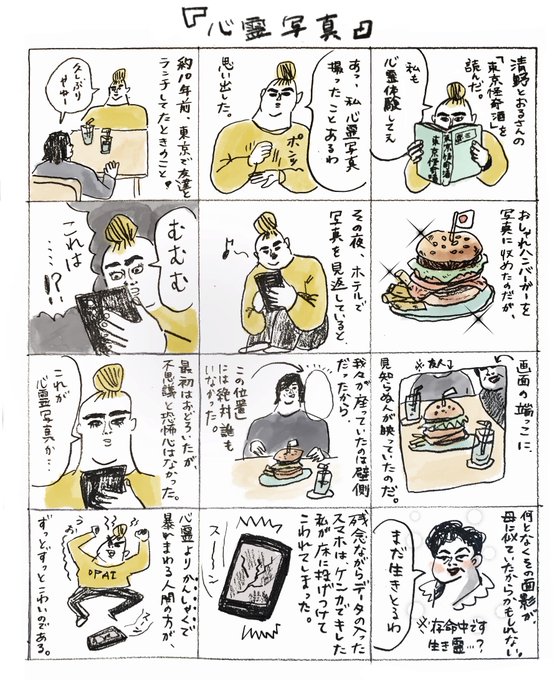 『心霊写真』
清野とおるさんの
「東京怪奇酒」を
読んだ。
私も
心霊体験してえ
東京怪奇酒
東京怪奇酒
あっ、私心霊写真
撮ったことあるわ
思い出した。
ポンッ
約10年前、東京で友達と
ランチしてたときのこと！
久しぶり
やねー
おしゃれハンバーガーを
写真に収めたのだが、
その夜、ホテルで
写真を見返していると、
むむむ
これは
……!?
画面の端っこに、
※友人J
見知らぬ人が映っていたのだ。
我々が座っていたのは壁側
だったから
この位置
には絶対誰も
いなかった。
最初はおどろいたが、
不思議と恐怖心はなかった。
これが
心霊写真か…
何となくその面影が
母に似ていたからかもしれない。
まだ生きとるわ
※存命中です
生き霊…？
残念ながらデータの入った
スマホは、ケンカでキレた
私が床に投げつけて
こわれてしまった。
スーン
心霊よりかんしゃくで
暴れまわる人間の方が、
ずっとずっとこわいのである。
うぉー
OPAI
スーン